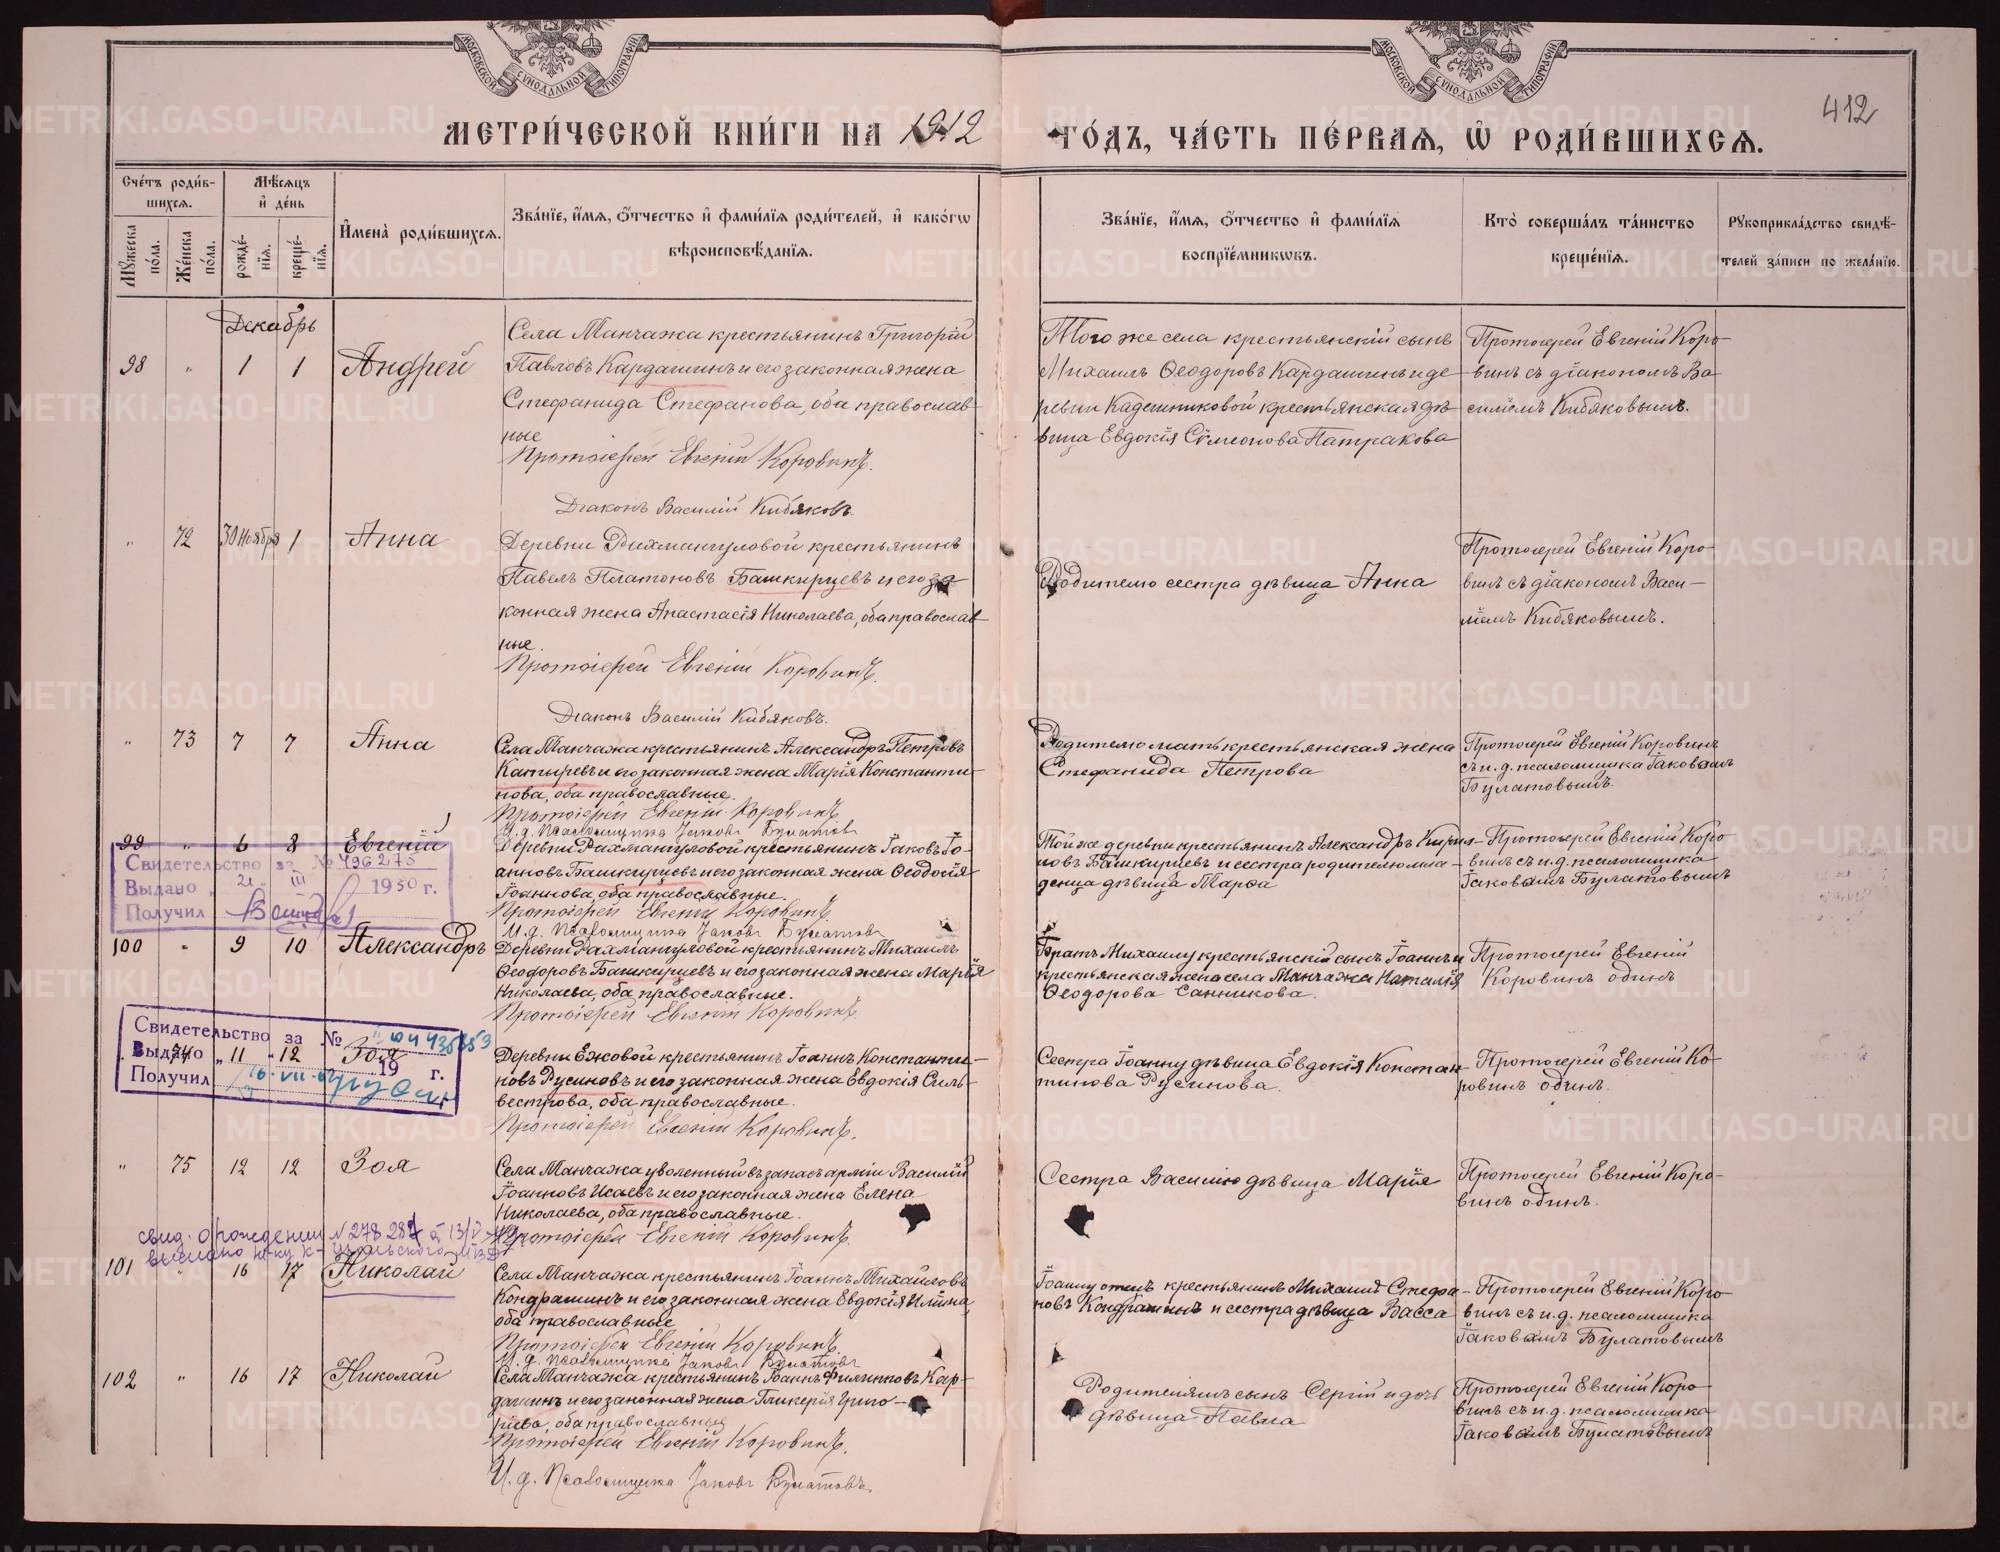 МОСКОВСКОЙ СУНОДАЛЬНОЙ ТИПОГРАФІИ
МОСКОВСКОЙ СУНОДАЛЬНОЙ ТИПОГРАФІИ
412
МЕТРИ́ЧЕСКОЙ КНИ́ГИ НА 1912 ГО́ДЪ, ЧА́СТЬ ПЕ́РВАЯ, Ѡ҆ РОДИ́ВШИХСЯ.
Сче́тъ роди́в-
шихся.
Мѣ́сяцъ
и҆ де́нь
Мꙋ́жеска по́ла.
Же́нска по́ла.
рожде́-
нїя.
креще́-
нїя.
И҆мена̀ роди́вшихся.
Зва́нїе, и҆́мя, ѻ҆́тчество и҆ фами́лїя роди́телей, и҆ како́гѡ
вѣроисповѣ́данїя.
Зва́нїе, и҆́мя, ѻ҆́тчество и҆ фами́лїя
воспрїе́мникѡвъ.
Кто̀ соверша́лъ та́инство
креще́нїя.
Рꙋкоприкла́дство свидѣ́-
телей за́писи по жела́нїю.
Декабрь
98 " 1 1 Андрей
Села Манчажа крестьянинъ Григорій
Павловъ Кардашинъ и его законная жена
Стефанида Стефанова, оба православ-
ные
Протоіерей Евгеній Коровинъ.
Діаконъ Василій Кибяковъ
Того же села крестьянскій сынъ
Михаилъ Ѳеодоровъ Кардашинъ и де-
ревни Кадешниковой крестьянская дѣ-
вица Евдокія Сѵмеонова Патракова
Протоіерей Евгеній Коро-
винъ съ діакономъ Ва-
силіемъ Кибяковымъ.
" 72 30 Ноября 1 Анна
Деревни Рахмангуловой крестьянинъ
Павелъ Платоновъ Башкирцевъ и его за-
конная жена Анастасія Николаева, оба православ-
ные.
Протоіерей Евгеній Коровинъ.
Діаконъ Василій Кибяковъ.
Родителю сестра дѣвица Анна
Протоіерей Евгеній Коро-
винъ съ діакономъ Васи-
ліемъ Кибяковымъ.
" 73 7 7 Анна
Села Манчажа крестьянинъ Александръ Петровъ
Катыревъ и его законная жена Марія Константи-
нова, оба православные.
Протоіерей Евгеній Коровинъ
И. д. Псаломщика Іаковъ Булатовъ
Родителю мать крестьянская жена
Стефанида Петрова
Протоіерей Евгеній Коровинъ
съ и. д. псаломщика Іаковомъ
Булатовымъ.
99 " 6 8 Евгеній
Деревни Рахмангуловой крестьянинъ Іаковъ Іо-
анновъ Башкирцевъ и его законная жена Ѳеодосія
Іоаннова, оба православные.
Протоіерей Евгеній Коровинъ.
И. д. Псаломщика Іаковъ Булатовъ
Той же деревни крестьянинъ Александръ Кирил-
ловъ Башкирцевъ и сестра родителю мла-
денца дѣвица Марѳа
Протоіерей Евгеній Коро-
винъ съ и. д. псаломщика
Іаковомъ Булатовымъ
Свидетельство за № 496275
Выдано " 21 III 1950 г.
Получил
100 " 9 10 Александръ
Деревни Рахмангуловой крестьянинъ Михаилъ
Ѳеодоровъ Башкирцевъ и его законная жена Марія
Николаева, оба православные.
Протоіерей Евгеній Коровинъ
Братъ Михаилу крестьянскій сынъ Іоаннъ и
крестьянская жена села Манчажа Наталія
Ѳеодорова Санникова.
Протоіерей Евгеній
Коровинъ одинъ
Свидетельство за №
Выдано 19 г.
Получил 16. VII.
" 74 11 12 Зоя
Деревни Ежовой крестьянинъ Іоаннъ Константи-
новъ Русиновъ и его законная жена Евдокія Силь-
вестрова, оба православные.
Протоіерей Евгеній Коровинъ.
Сестра Іоанну дѣвица Евдокія Констан-
тинова Русинова.
Протоіерей Евгеній Ко-
ровинъ одинъ.
" 75 12 12 Зоя
Села Манчажа уволенный въ запасъ арміи Василій
Іоанновъ Исаевъ и его законная жена Елена
Николаева, оба православные.
Протоіерей Евгеній Коровинъ.
Сестра Василію дѣвица Марія
Протоіерей Евгеній Коро-
винъ одинъ.
свид. о рождении № 278 287 от 13/V
выслано
101 " 16 17 Николай
Села Манчажа крестьянинъ Іоаннъ Михайловъ
Кондрашинъ и его законная жена Евдокія Иліина,
оба православные
Протоіерей Евгеній Коровинъ
И. д. Псаломщика Іаковъ Булатовъ
Іоанну отецъ крестьянинъ Михаилъ Стефа-
новъ Кондрашинъ и сестра дѣвица Васса
Протоіерей Евгеній Коро-
винъ съ и. д. псаломщика
Іаковомъ Булатовымъ
102 " 16 17 Николай
Села Манчажа крестьянинъ Іоаннъ Филипповъ Кар-
дашинъ и его законная жена Гликерія Григо-
рьева, оба православные
Протоіерей Евгеній Коровинъ.
И. д. Псаломщика Іаковъ Булатовъ.
Родителямъ сынъ Сергій и дочь
дѣвица Павла
Протоіерей Евгеній Коро-
винъ съ и. д. псаломщика
Іаковомъ Булатовымъ